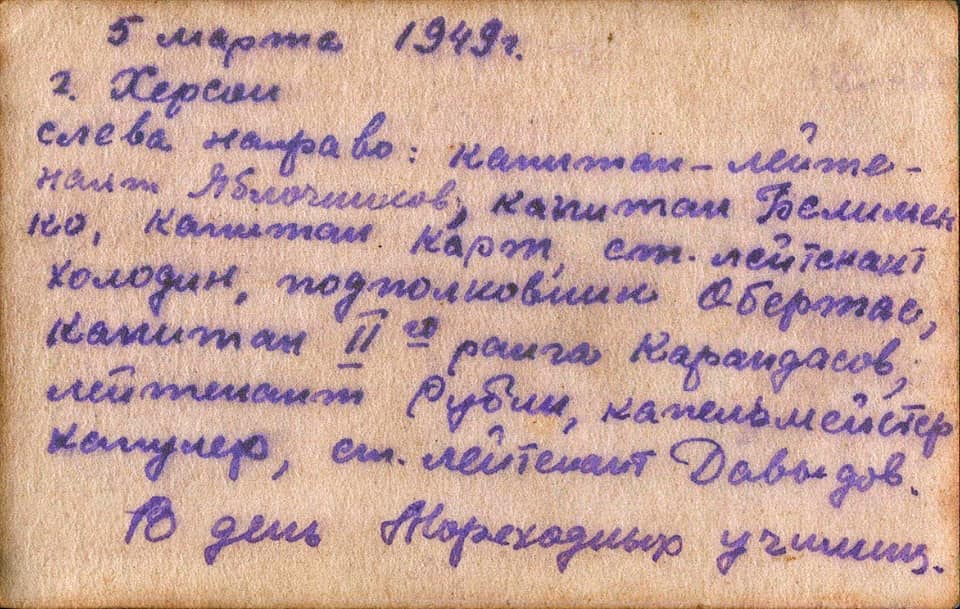 5 марта 1949г.
г. Херсон
слева направо: капитан-лейте-
нант Яблочников, капитан Белимен
ко, капитан Карт, ст. лейтенант
Холодин, подполковник Обертас,
капитан II го ранга Карандасов,
лейтенант Рубли, капельмейстер
капулер, ст. лейтенант Давыдов.
В день Мореходных училищ.